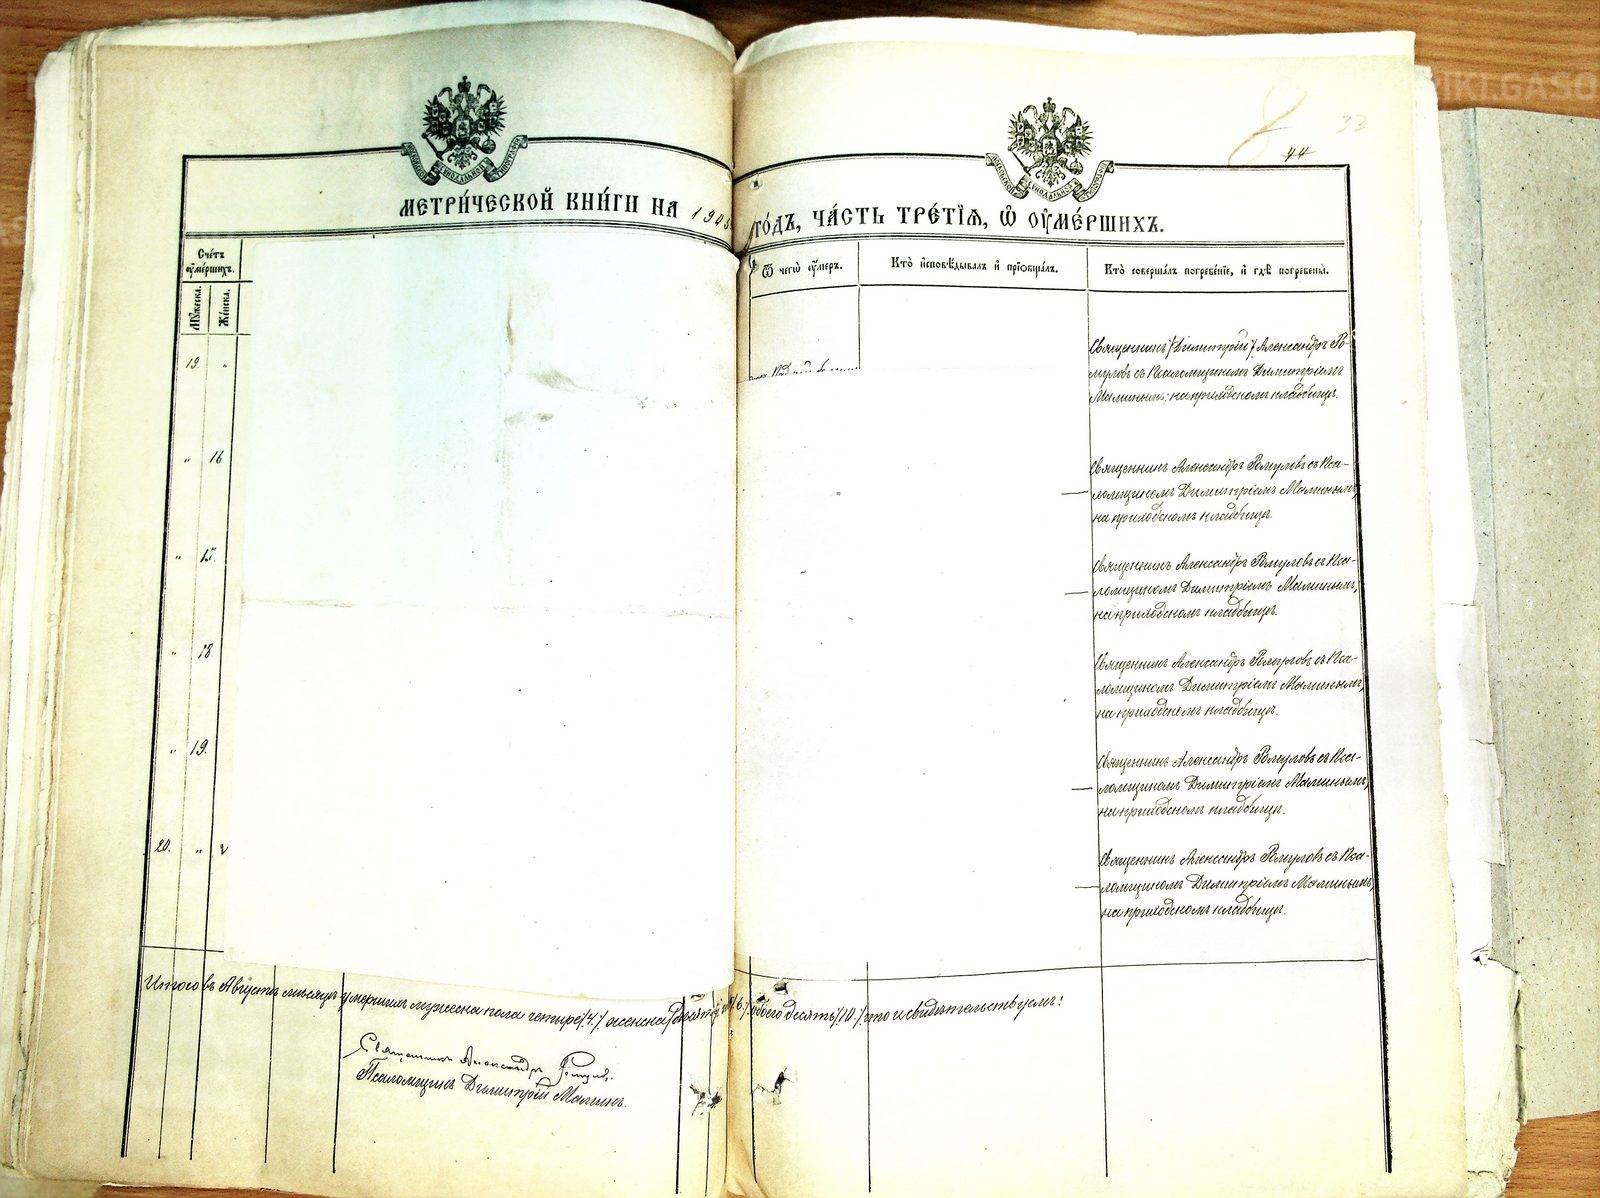 44
33
МЕТРИ́ЧЕСКОЙ КНИ́ГИ НА 190
ГО́ДЪ, ЧА́СТЬ ТРЕ́ТІѦ, Ѿ ОУМЕ́РШИХЪ.
Сче́тъ
оуме́ршихъ.
Мꙋ́жеска.
Же́нска.
Ѿ чегѡ̀ оу́меръ.
Кто̀ и҆сповѣ́дывалъ и҆ прїѡбща́лъ.
Кто̀ соверша́лъ погребе́нїе, и҆ гдѣ̀ погребены̀.
19. "
Священникъ /Димитрій/ Александръ Ро-
муловъ съ Псаломщикомъ Димитріемъ
Малинымъ; на приходскомъ кладбищѣ.
" 16
Священникъ Александръ Ромуловъ съ Пса-
ломщикомъ Димитріемъ Малинымъ,
на приходскомъ кладбищѣ.
" 17.
Священникъ Александръ Ромуловъ съ Пса-
ломщикомъ Димитріемъ Малинымъ,
на приходскомъ кладбищѣ.
" 18.
Священникъ Александръ Ромуловъ съ Пса-
ломщикомъ Димитріемъ Малинымъ,
на приходскомъ кладбищѣ.
" 19.
Священникъ Александръ Ромуловъ съ Пса-
ломщикомъ Димитріемъ Малинымъ,
на приходскомъ кладбищѣ.
20. "
Священникъ Александръ Ромуловъ съ Пса-
ломщикомъ Димитріемъ Малинымъ,
на приходскомъ кладбищѣ.
Итого въ Августѣ мѣсяцѣ умершихъ мужеска пола четыре /4./ женска /6./ обоего десять /10./ что и свидѣтельствуемъ:
Священникъ Александръ
Псаломщикъ Димитрій Малинъ.